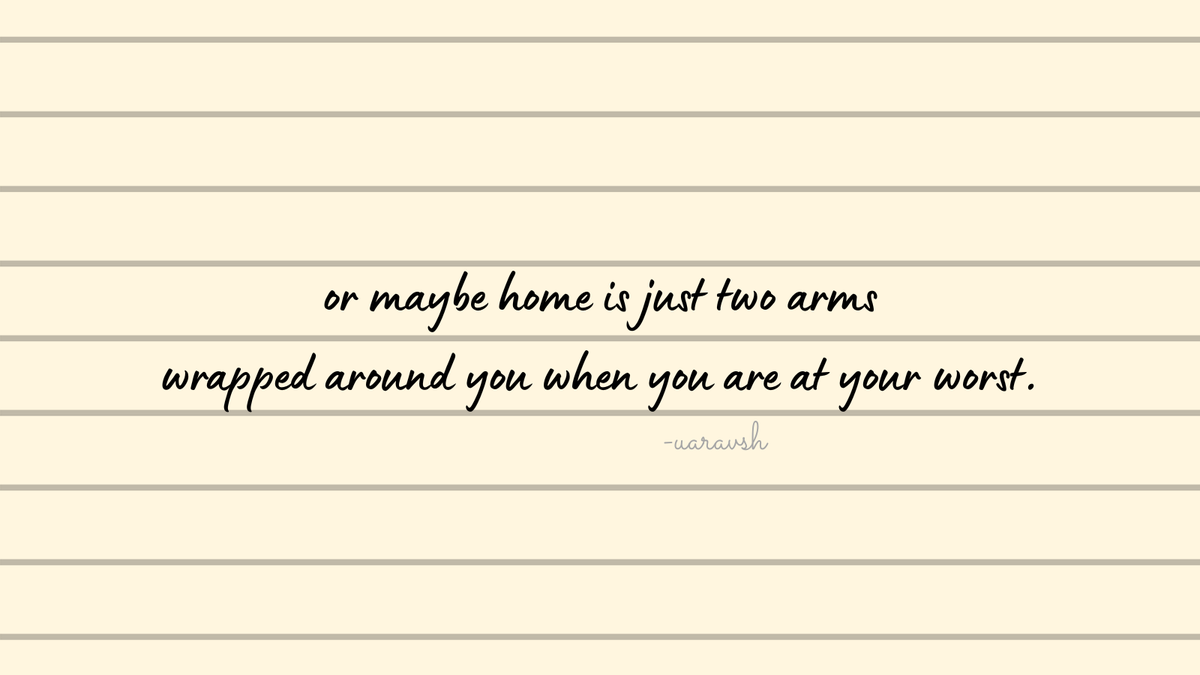 or maybe home is just two arms
wrapped around you when you are at your worst.
-uaravsh